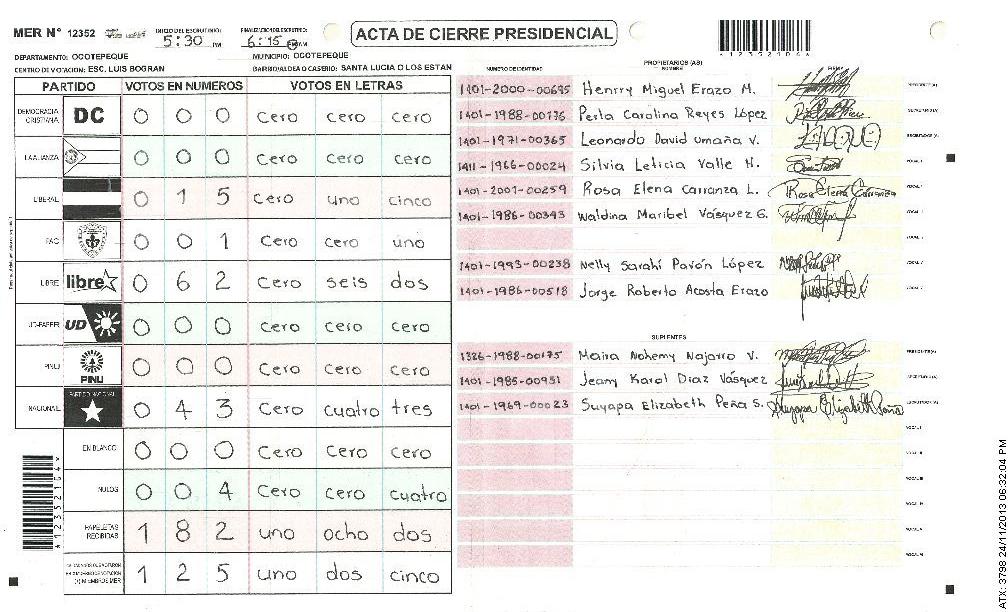 MER N° 12352 INICIO DEL ESCRUTINIO: 5:30 PM FINALIZACION DEL ESCRUTINIO: 6:15 PM
ACTA DE CIERRE PRESIDENCIAL
*12352106*
DEPARTAMENTO: OCOTEPEQUE MUNICIPIO: OCOTEPEQUE
CENTRO DE VOTACION: ESC. LUIS BOGRAN BARRIO/ALDEA O CASERIO: SANTA LUCIA O LOS ESTAN
PARTIDO VOTOS EN NUMEROS VOTOS EN LETRAS
DEMOCRACIA CRISTIANA DC 0 0 0 cero cero cero
LA ALIANZA 0 0 0 cero cero cero
LIBERAL 0 1 5 cero uno cinco
PAC 0 0 1 cero cero uno
LIBRE libre 0 6 2 cero seis dos
UD-FAPER UD 0 0 0 cero cero cero
PINU PINU 0 0 0 cero cero cero
NACIONAL PARTIDO NACIONAL 0 4 3 cero cuatro tres
EN BLANCO 0 0 0 cero cero cero
NULOS 0 0 4 cero cero cuatro
PAPELETAS RECIBIDAS 1 8 2 uno ocho dos
(+) MIEMBROS MER 1 2 5 uno dos cinco
PROPIETARIOS (AS)
NUMERO DE IDENTIDAD NOMBRE FIRMA
1401-2000-00695 Henrry Miguel Erazo M.
1401-1988-00176 Perla Carolina Reyes López
1401-1971-00365 Leonardo David Umaña V.
1411-1966-00024 Silvia Leticia Valle H.
1401-2001-00259 Rosa Elena Carranza L. Rosa Elena Carranza
1401-1986-00343 Waldina Maribel Vásquez G.
1401-1993-00238 Nelly Sarahí Pavón López
1401-1986-00518 Jorge Roberto Acosta Erazo
SUPLENTES
1326-1988-00175 Maira Nohemy Najarro V.
1401-1985-00951 Jeamy Karol Diaz Vásquez
1401-1969-00023 Suyapa Elizabeth Peña S. Suyapa Elizabeth Peña
ATX: 3798 24/11/2013 06:32:04 PM